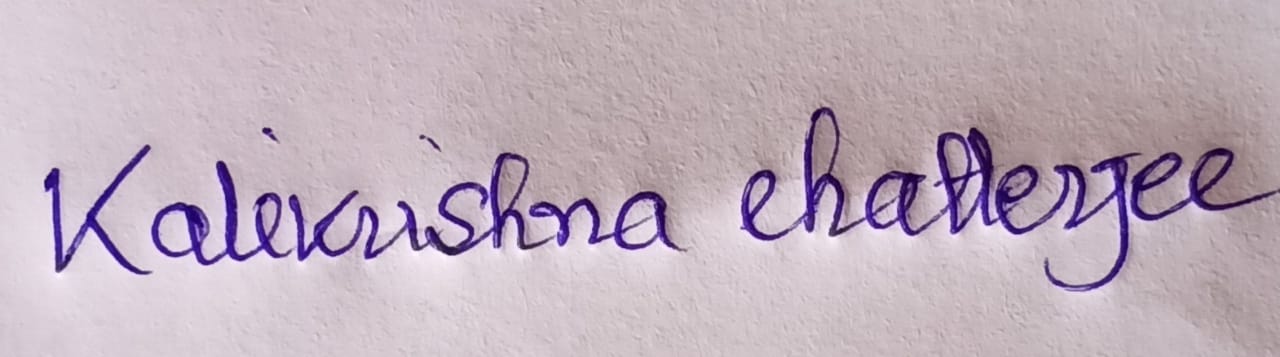 Kalikrishna chatterjee